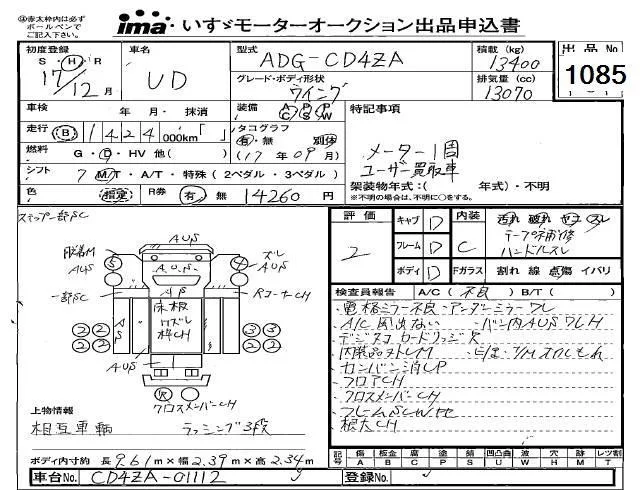 ④赤太枠内は必ず
ボールペンで
ご記入ください。
ima いすゞモーターオークション出品申込書
初度登録
S・H・R
17/12月
車名
UD
型式
ADG-CD4ZA
積載 (kg)
13400
出品No
1085
グレード・ボディ形状
ウイング
排気量 (cc)
13070
車検 年 月・抹消
装備 AC PS PW
特記事項
走行 B 1424 000km「 」
タコグラフ
有・無 別体
(17年09月)
メーター1周
ユーザー買取車
燃料 G・D・HV 他( )
シフト 7 MT・A/T・特殊(2ペダル・3ペダル)
架装物年式:( 年式)・不明
※不明の場合は、不明に○をする。
色 指定 R券 有 無 14260円
ステップ一部SC
評価
2
キャブ D
フレーム D
ボディ D
内装
C
汚れ 破れ コゲ スレ
テープ補修
ハンドルスレ
Fガラス 割れ 線 点傷 イバリ
検査員報告 A/C(不良)B/T( )
・電格ミラー不良・アンダーミラーワレ
・A/C風出ない
・バン内AUSワレH
・フロアCH
・クロスメンバーCH
・根太CH
AUS
AUS
一部SC
RコーナーCH
床板
ワズレ
枠CH
AUS
クロスメンバーCH
上物情報
相互車輌 ラッシング3段
ボディ内寸約 長 9.61m×幅 2.39m×高 2.34m
車台No. CD4ZA-01112
登録No.
記号 傷 A 板金 B 腐 C 塗 P 錆 S 凹凸曲 U 波 W 穴 H 跡 M レツ割 T